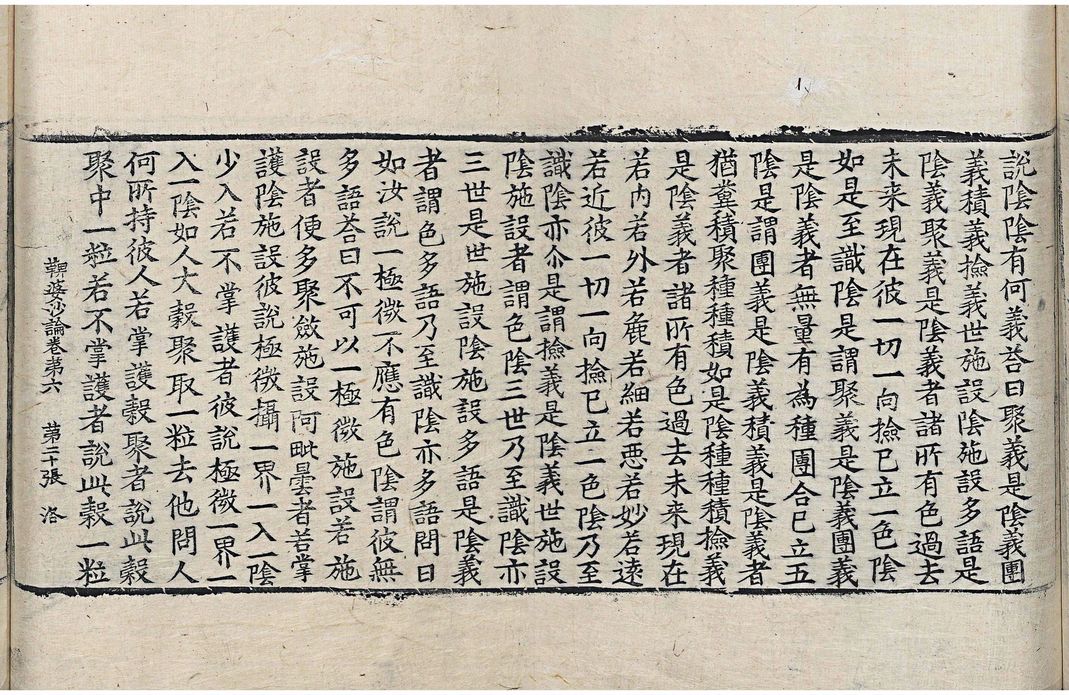 說陰陰有何義荅曰聚義是陰義團
義積義撿義世施設陰施設多語是
陰義聚義是陰義者諸所有色過去
未来現在彼一切一向撿已立一色陰
如是至識陰是謂聚義是陰義團義
是陰義者無量有為種團合已立五
陰是謂團義是陰義積義是陰義者
猶糞積聚種種積如是陰種種積撿義
是陰義者諸所有色過去未来現在
若內若外若麁若細若惡若妙若遠
若近彼一切一向撿已立一色陰乃至
識陰亦尒是謂撿義是陰義世施設
陰施設者謂色陰三世乃至識陰亦
三世是世施設陰施設多語是陰義
者謂色多語乃至識陰亦多語問曰
如汝說一極微不應有色陰謂彼無
多語荅曰不可以一極微施設若施
設者便多聚斂施設阿毗曇者若掌
護陰施設彼說極微攝一界一入一陰
少入若不掌護者彼說極微一界一
入一陰如人大穀聚取一粒去他問人
何所持彼人若掌護穀聚者說此穀
聚中一粒若不掌護者說此穀一粒
鞞婆沙論卷第六 第三十張 洛
1